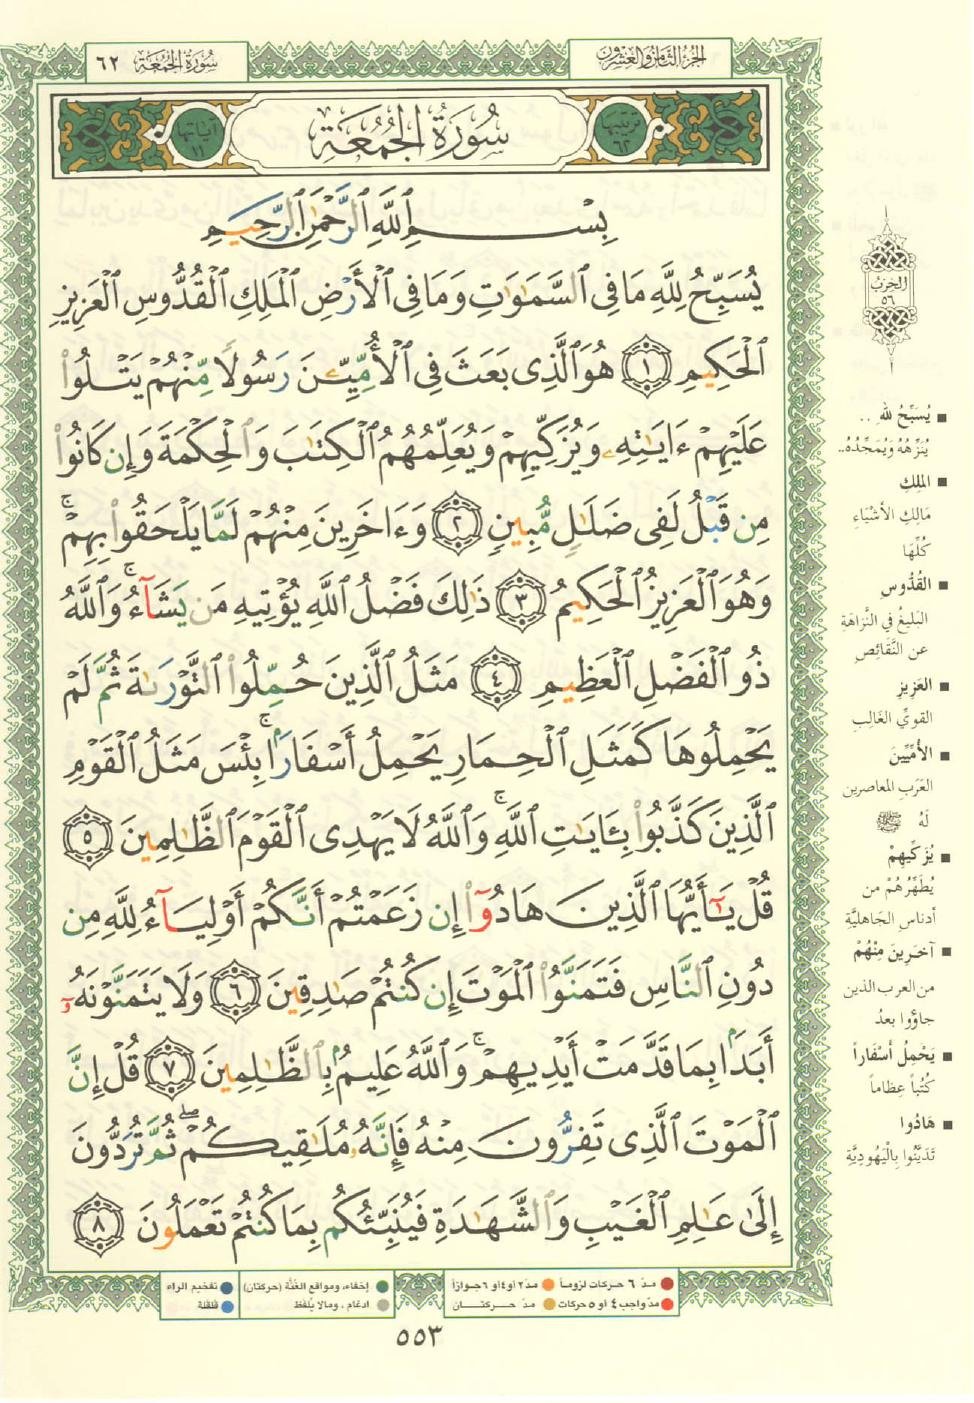 سُورَةُ الجُمُعَة ٦٢
الجزء الثامن والعشرون
ترتيبها ٦٢
سُورَةُ الجُمُعَة
آياتها ١١
بِسْمِ ٱللَّهِ ٱلرَّحْمَٰنِ ٱلرَّحِيمِ
يُسَبِّحُ لِلَّهِ مَا فِى ٱلسَّمَٰوَٰتِ وَمَا فِى ٱلْأَرْضِ ٱلْمَلِكِ ٱلْقُدُّوسِ ٱلْعَزِيزِ
ٱلْحَكِيمِ ١ هُوَ ٱلَّذِى بَعَثَ فِى ٱلْأُمِّيِّـۧنَ رَسُولًا مِّنْهُمْ يَتْلُوا۟
عَلَيْهِمْ ءَايَٰتِهِۦ وَيُزَكِّيهِمْ وَيُعَلِّمُهُمُ ٱلْكِتَٰبَ وَٱلْحِكْمَةَ وَإِن كَانُوا۟
مِن قَبْلُ لَفِى ضَلَٰلٍ مُّبِينٍ ٢ وَءَاخَرِينَ مِنْهُمْ لَمَّا يَلْحَقُوا۟ بِهِمْ ۚ
وَهُوَ ٱلْعَزِيزُ ٱلْحَكِيمُ ٣ ذَٰلِكَ فَضْلُ ٱللَّهِ يُؤْتِيهِ مَن يَشَآءُ ۚ وَٱللَّهُ
ذُو ٱلْفَضْلِ ٱلْعَظِيمِ ٤ مَثَلُ ٱلَّذِينَ حُمِّلُوا۟ ٱلتَّوْرَىٰةَ ثُمَّ لَمْ
يَحْمِلُوهَا كَمَثَلِ ٱلْحِمَارِ يَحْمِلُ أَسْفَارًۢا ۚ بِئْسَ مَثَلُ ٱلْقَوْمِ
ٱلَّذِينَ كَذَّبُوا۟ بِـَٔايَٰتِ ٱللَّهِ ۚ وَٱللَّهُ لَا يَهْدِى ٱلْقَوْمَ ٱلظَّٰلِمِينَ ٥
قُلْ يَٰٓأَيُّهَا ٱلَّذِينَ هَادُوٓا۟ إِن زَعَمْتُمْ أَنَّكُمْ أَوْلِيَآءُ لِلَّهِ مِن
دُونِ ٱلنَّاسِ فَتَمَنَّوُا۟ ٱلْمَوْتَ إِن كُنتُمْ صَٰدِقِينَ ٦ وَلَا يَتَمَنَّوْنَهُۥٓ
أَبَدًۢا بِمَا قَدَّمَتْ أَيْدِيهِمْ ۚ وَٱللَّهُ عَلِيمٌۢ بِٱلظَّٰلِمِينَ ٧ قُلْ إِنَّ
ٱلْمَوْتَ ٱلَّذِى تَفِرُّونَ مِنْهُ فَإِنَّهُۥ مُلَٰقِيكُمْ ۖ ثُمَّ تُرَدُّونَ
إِلَىٰ عَٰلِمِ ٱلْغَيْبِ وَٱلشَّهَٰدَةِ فَيُنَبِّئُكُم بِمَا كُنتُمْ تَعْمَلُونَ ٨
الحِزْبُ
٥٦
يُسَبِّحُ للهِ ..
يُنَزِّهُهُ وَيُمَجِّدُهُ..
المَلِكِ
مَالِكِ الأَشْيَاءِ
كُلِّهَا
القُدُّوسِ
البَلِيغِ فِي النَّزَاهَةِ
عن النَّقَائِصِ
العَزِيزِ
القَوِيِّ الغَالِبِ
الأُمِّيِّينَ
العَرَبِ المعاصرين
لَهُ ﷺ
يُزَكِّيهِمْ
يُطَهِّرُهُمْ من
أدناسِ الجَاهليَّةِ
آخَرِينَ مِنْهُمْ
من العرب الذين
جاؤوا بعدُ
يَحْمِلُ أَسْفَاراً
كُتُباً عِظَاماً
هَادُوا
تَدَيَّنُوا بِالْيَهُودِيَّةِ
مدّ ٦ حركات لزوماً
مدّ ٢ أو ٤ أو ٦ جوازاً
إخفاء، ومواقع الغُنَّة (حركتان)
تفخيم الراء
مدّ واجب ٤ أو ٥ حركات
مدّ حركتان
ادغام، ومالا يُلفظ
قلقلة
٥٥٣